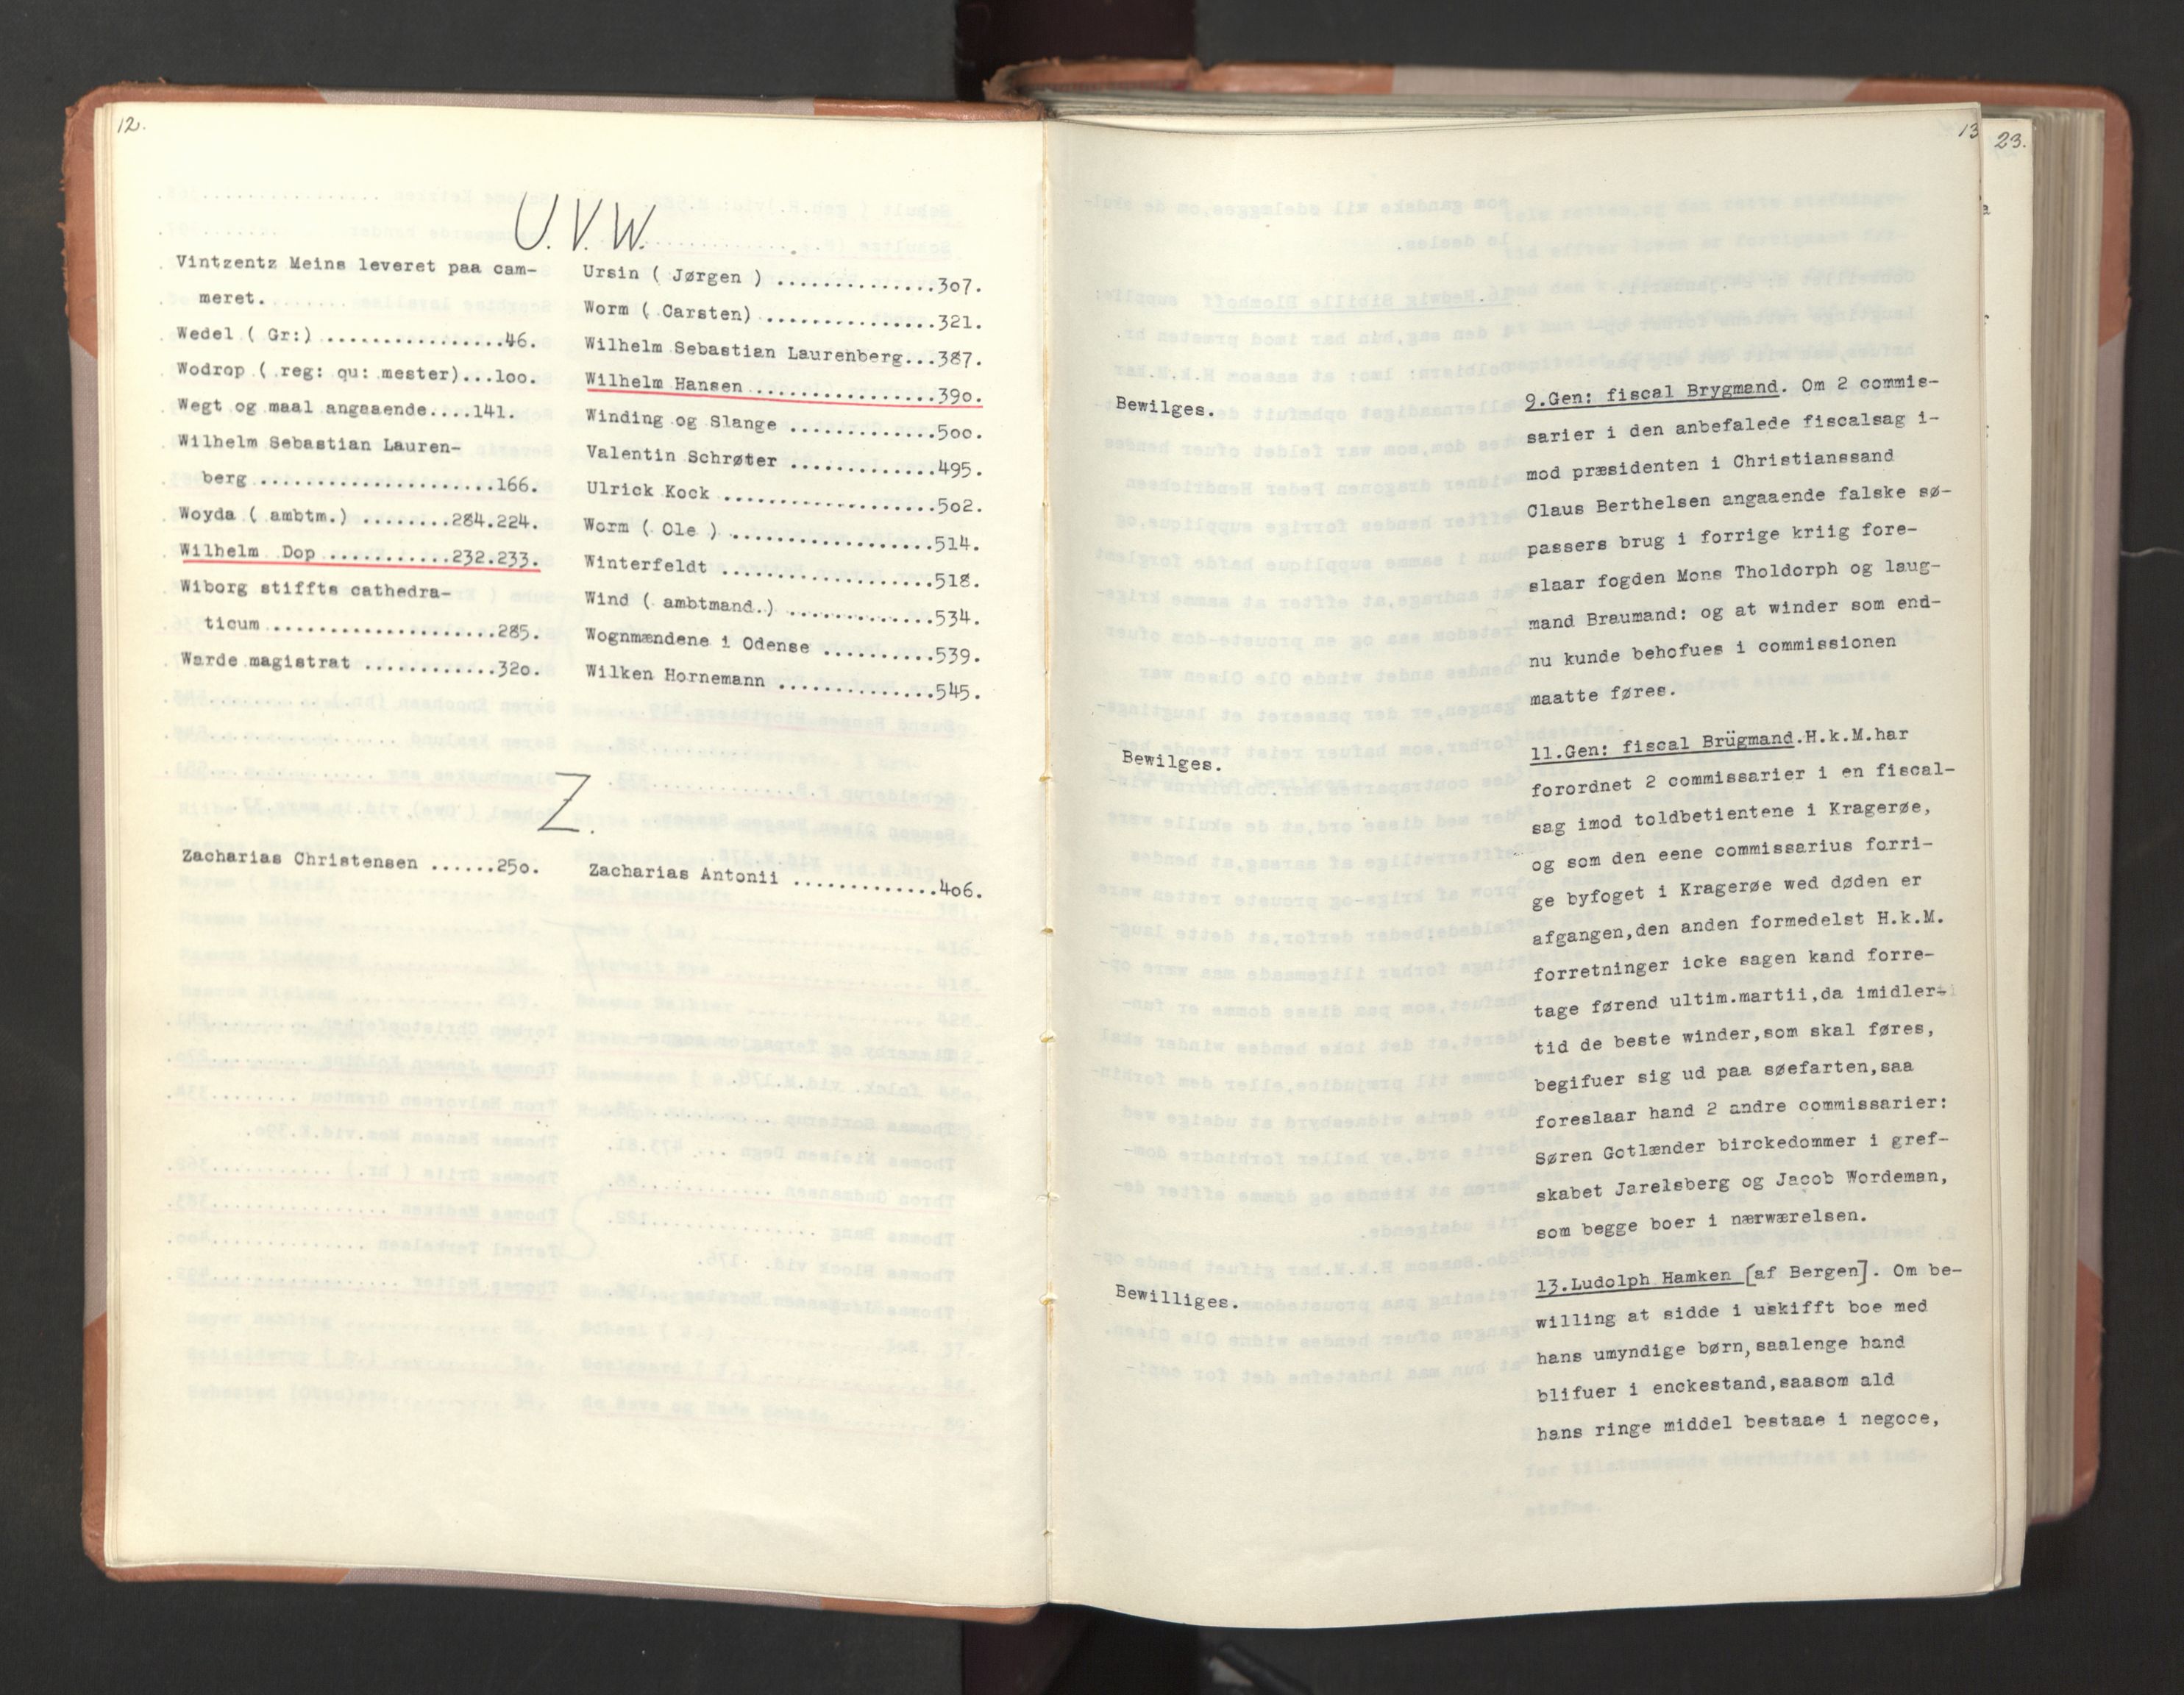 12.
U.V.W.
Vintzentz Meins leveret paa cam-
meret.
Wedel ( Gr:) ................46.
Wodrop ( reg: qu: mester)...loo.
Wegt og maal angaaende....141.
Wilhelm Sebastian Lauren-
berg .....................166.
Woyda ( ambtm.) ........284.224.
Wilhelm Dop ...........232.233.
Wiborg stiffts cathedra-
ticum ....................285.
Warde magistrat ............32o.
Ursin ( Jørgen ) ..............3o7.
Worm ( Carsten) ...............321.
Wilhelm Sebastian Laurenberg...387.
Wilhelm Hansen ................39o.
Winding og Slange .............5oo.
Valentin Schrøter .............495.
Ulrick Kock ...................5o2.
Worm ( Ole ) ..................514.
Winterfeldt ...................518.
Wind ( ambtmand.) .............534.
Wognmændene i Odense ..........539.
Wilken Hornemann ..............545.
Z.
Zacharias Christensen ......25o.
Zacharias Antonii .............4o6.
13
23.
Bewilges.
9.Gen: fiscal Brygmand. Om 2 commis-
sarier i den anbefalede fiscalsag i-
mod præsidenten i Christianssand
Claus Berthelsen angaaende falske sø-
passers brug i forrige kriig fore-
slaar fogden Mons Tholdorph og laug-
mand Braumand: og at winder som end-
nu kunde behofues i commissionen
maatte føres.
Bewilges.
11.Gen: fiscal Brügmand.H.k.M.har
forordnet 2 commissarier i en fiscal-
sag imod toldbetientene i Kragerøe,
og som den eene commissarius forri-
ge byfoget i Kragerøe wed døden er
afgangen,den anden formedelst H.k.M.
forretninger icke sagen kand forre-
tage førend ultim.martii,da imidler-
tid de beste winder,som skal føres,
begifuer sig ud paa søefarten,saa
foreslaar hand 2 andre commissarier:
Søren Gotlænder birckedommer i gref-
skabet Jarelsberg og Jacob Wordeman,
som begge boer i nærwærelsen.
Bewilliges.
13.Ludolph Hamken [af Bergen]. Om be-
willing at sidde i uskifft boe med
hans umyndige børn,saalenge hand
blifuer i enckestand,saasom ald
hans ringe middel bestaae i negoce,